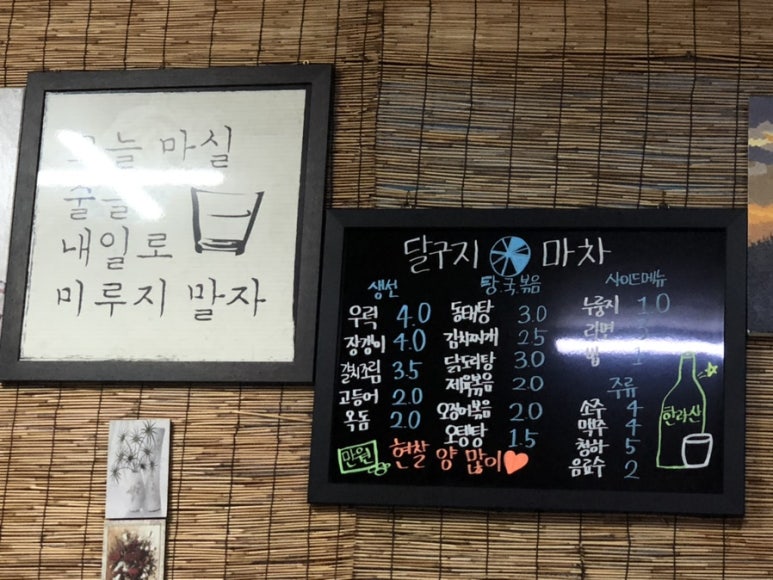 오늘 마실
술을
내일로
미루지 말자
달구지 마차
생선
우럭 4.0
장갱이 4.0
갈치조림 3.5
고등어 2.0
옥돔 2.0
탕.국.볶음
동태탕 3.0
김치찌개 2.5
닭도리탕 3.0
제육볶음 2.0
오징어볶음 2.0
오뎅탕 1.5
사이드메뉴
누룽지 1.0
라면
밥
주류
소주 4
맥주 4
청하 5
음료수 2
한라산
만원 현찰 양 많이